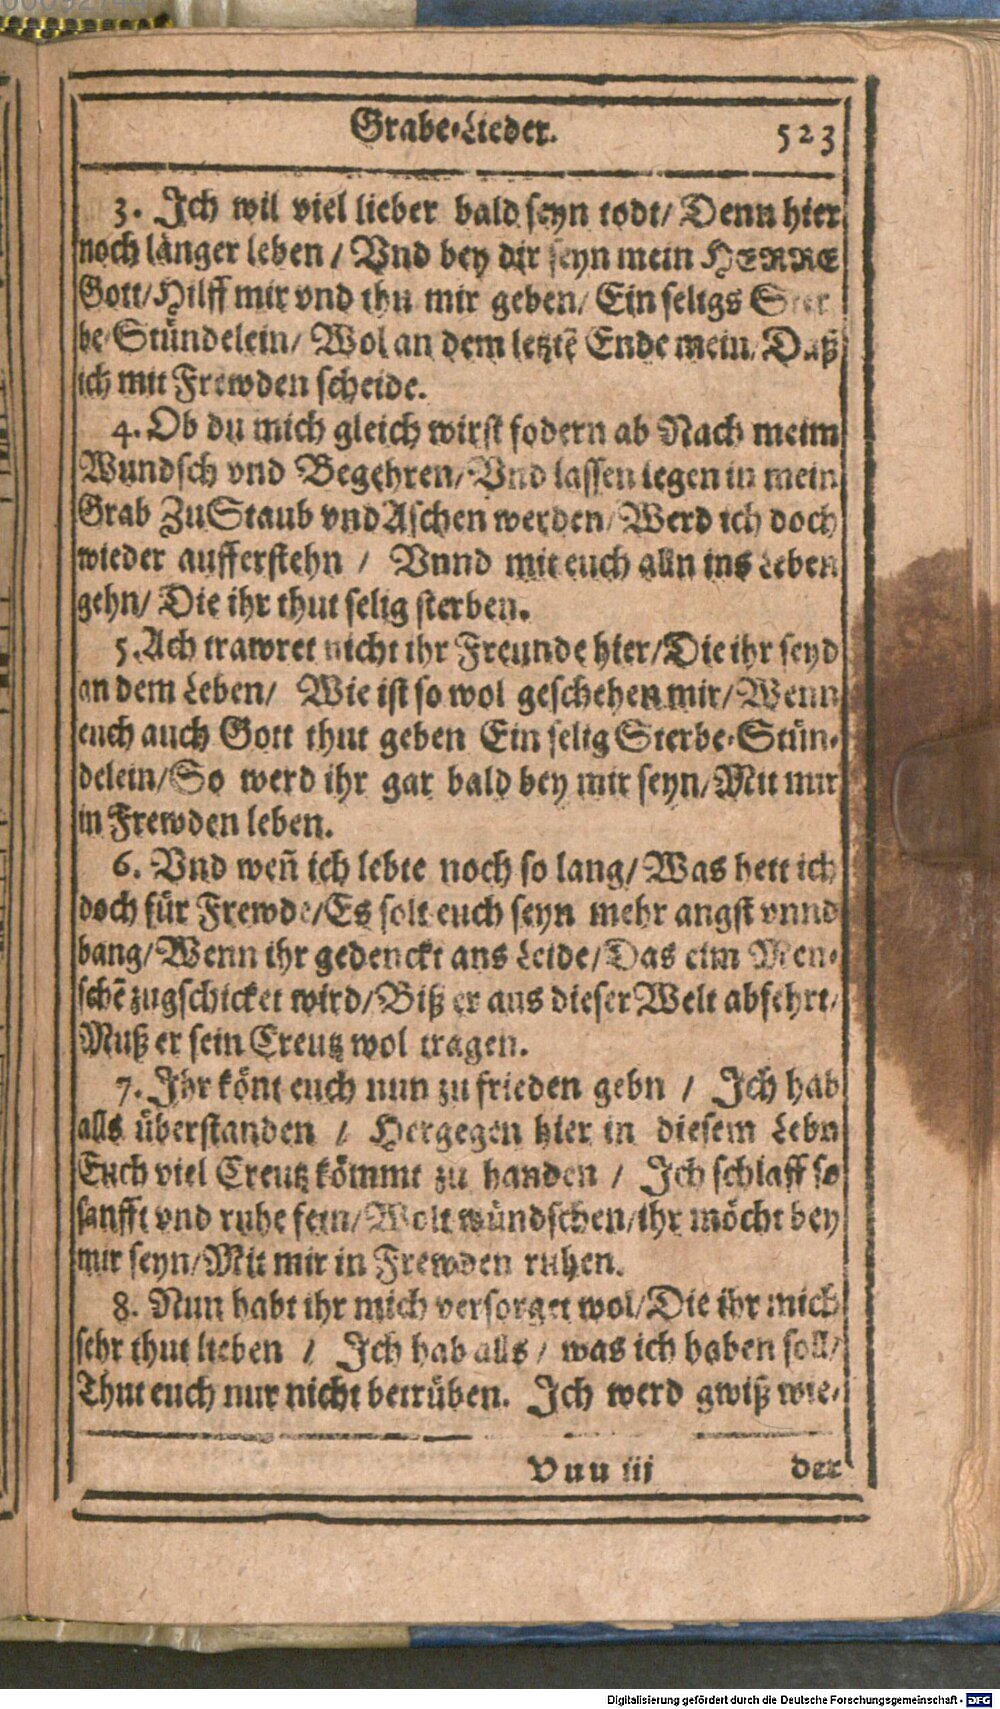 Grabe-Lieder. 523
3. Ich wil viel lieber bald seyn todt/ Denn hier
noch länger leben / Vnd bey dir seyn mein HERRE
Gott/ Hilff mir vnd thu mir geben/ Ein seligs Ster
be-Stündelein/ Wol an dem letztē Ende mein/ Daß
ich mit Frewden scheide.
4. Ob du mich gleich wirst fodern ab Nach meim
Wundsch vnd Begehren/ Vnd lassen legen in mein
Grab Zu Staub vnd Aschen werden/ Werd ich doch
wieder aufferstehn / Vnnd mit euch alln ins Leben
gehn/ Die ihr thut selig sterben.
5. Ach trawret nicht ihr Freunde hier/ Die ihr seyd
an dem Leben/ Wie ist so wol geschehen mir/ Wenn
euch auch Gott thut geben Ein selig Sterbe-Stün-
delein/ So werd ihr gar bald bey mir seyn/ Mit mir
in Frewden leben.
6. Vnd weñ ich lebte noch so lang/ Was hett ich
doch für Frewde/ Es solt euch seyn mehr angst vnnd
bang/ Wenn ihr gedenckt ans Leide/ Das eim Men-
schē zugschicket wird/ Biß er aus dieser Welt abfehrt/
Muß er sein Creutz wol tragen.
7. Ihr könt euch nun zu frieden gebn / Ich hab
alls überstanden / Hergegen hier in diesem Lebn
Euch viel Creutz kömmt zu handen / Ich schlaff so
sanfft vnd ruhe fein/ Wolt wündschen/ ihr möcht bey
mir seyn/ Mit mir in Frewden ruhen.
8. Nun habt ihr mich versorget wol/ Die ihr mich
sehr thut lieben / Ich hab alls / was ich haben soll/
Thut euch nur nicht betrüben. Ich werd gwiß wie-
Vuu iij der
Digitalisierung gefördert durch die Deutsche Forschungsgemeinschaft - DFG